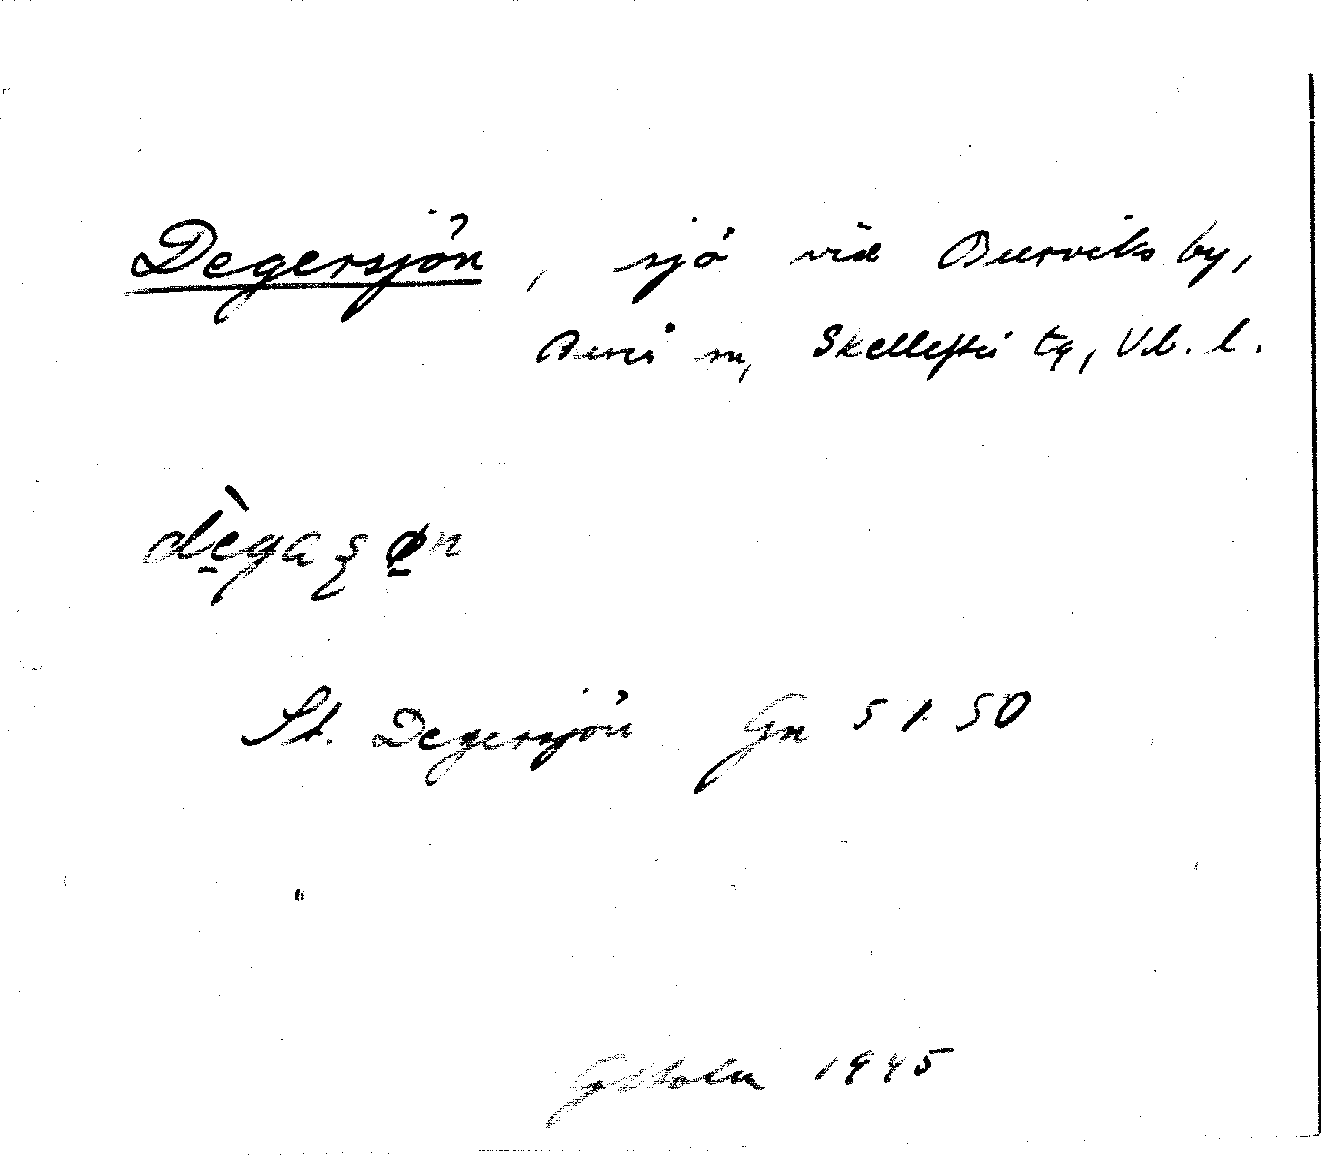 Degersjön, sjö vid Burviks by,
Bureå sn, Skellefteå tg, Vb. l.
dè̱gaʂø̱n
St. Degersjön Gk 51 50
GHolm 1945